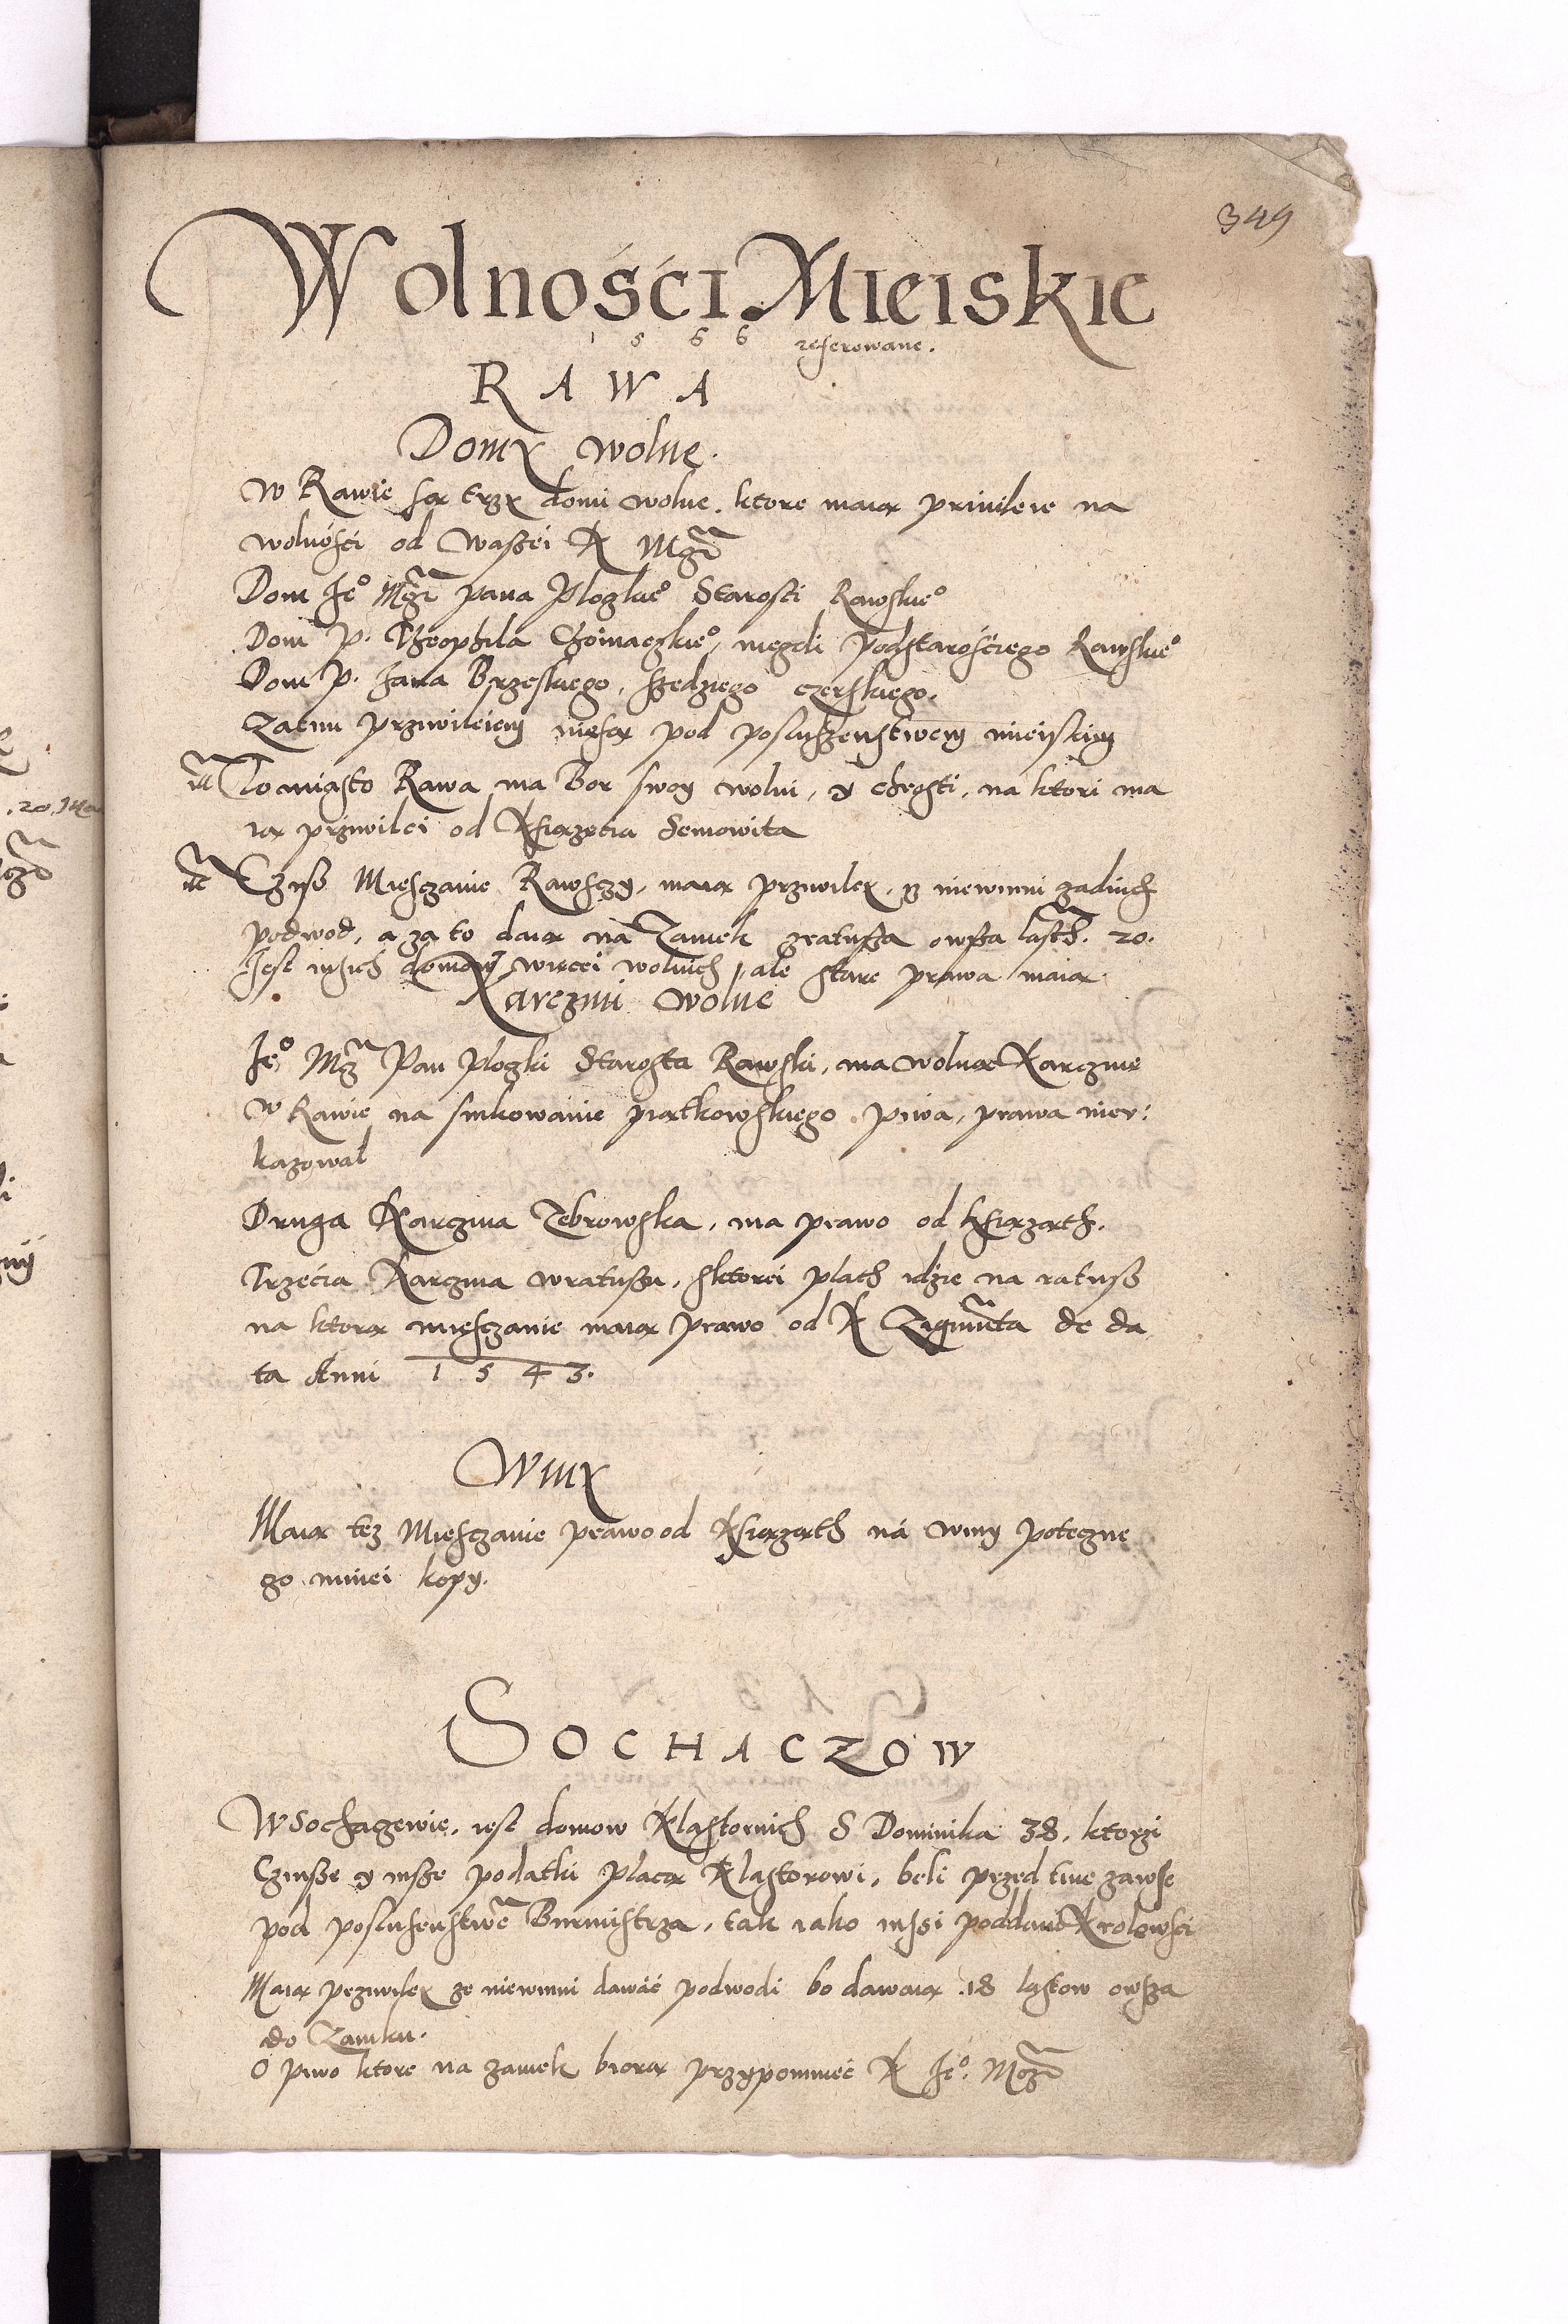 349
Wolności Mieiskie
1 5 6 6 referowane.
R A W A
Domy wolne.
W Rawie są trzy domi wolne, ktore maią priuileie na
wolności od Waßei K Mczi
Dom Je° Mczi pana Ploczkie° Starosti Rawskie°
Dom p. Theophila Choinaczkie°, niegdi podstarościego Rawskie°
Dom p. Jana Brzeskiego, sędziego czerskiego.
Zaemi przywileiem niesą pod posłußenstwem mieiskim
To miasto Rawa ma Bor swoy wolni, y chrosti, na ktori ma
ią przwilei od Ksiązęcia Semowita
Ciyß Miesczanie Rawsczy, maią przwiley, yz niewinni zadnich
podwod, a za to daią na Zamek zratußa owßa lasth. 20.
Jest inßich domow więcei wolnich, ale stare prawa maią
Karczmi wolne
Je° Mcz Pan Ploczki Starosta Rawski, ma wolną Karczmę
w Rawie na sinkowanie piątkowskiego piwa, prawa nie v:
kazował
Druga Karczma Zebrowska, ma prawo od ksiąząth.
Trzecia Karczma w ratußu, sktorei plath idzie na ratuß
na ktorą miesczanie maią prawo od K Zigmunta de da
ta Anni 1 5 4 3.
Winy
Maią tez Miesczanie prawo od Ksiąząth ná winy poteczne
go mniei kopy.
SOCHACZOW
W Sochaczewie, iest domow Klastornich S Dominika 38, ktorzi
Czinße y inße podatki placą Klastorowi, beli przed tim zawse
pod poslusenstwe Burmistrza, tak iako inßi poddani Krolewsci
Maią przwiley ze niewinni dawać podwodi bo dawaią 18 łastow owßa
do Zamku.
O piwo ktore na zamek biorą przypomnieć K Je° Mczi